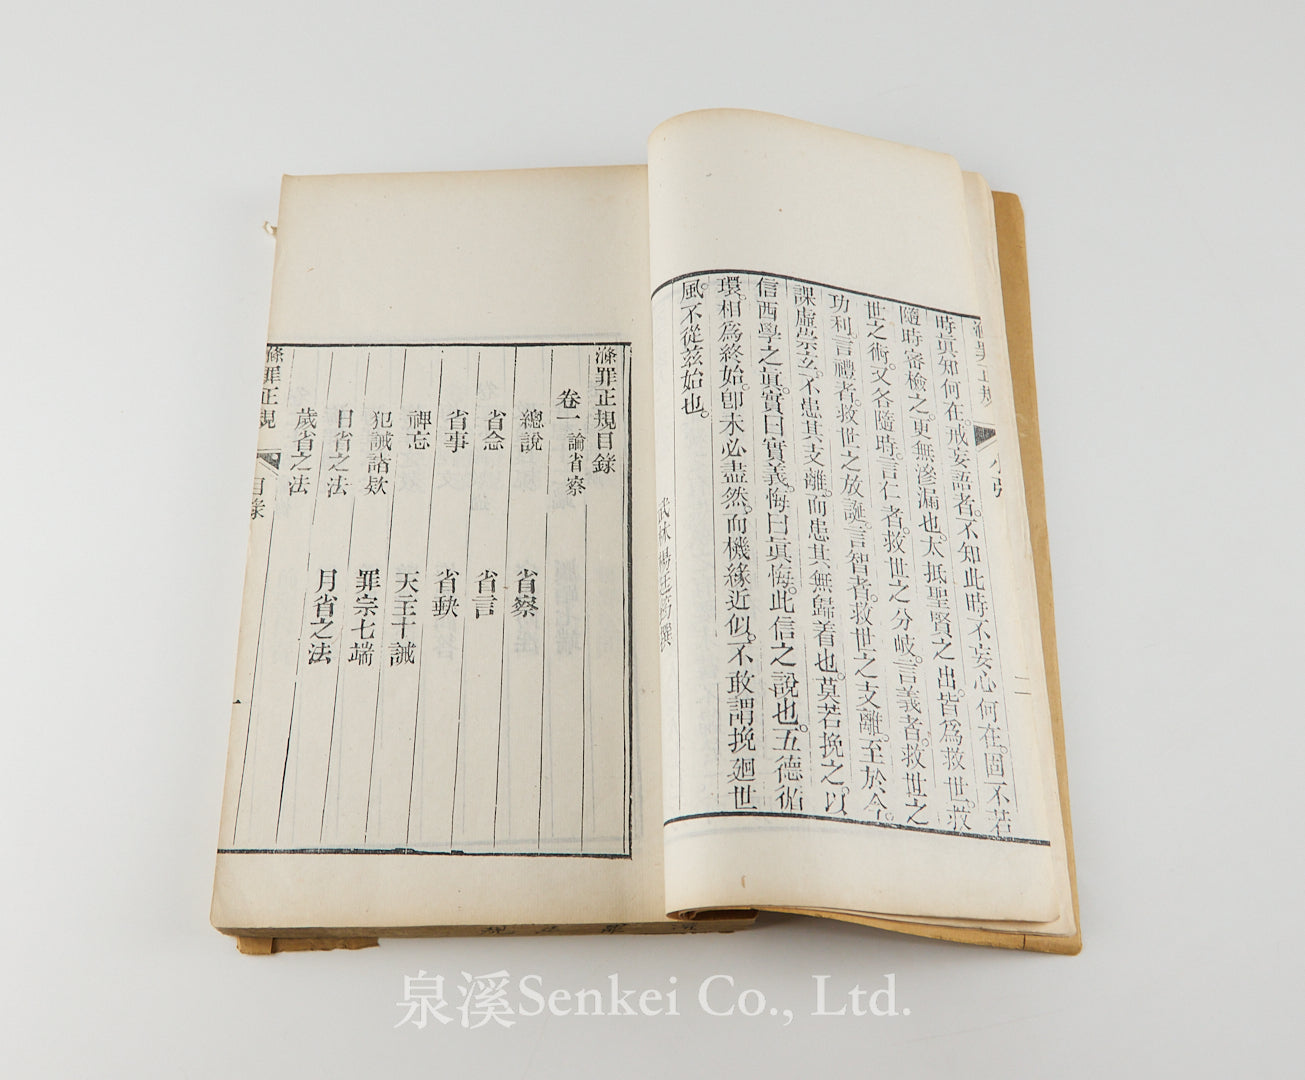 時眞知何在戒妄語者不知此時不妄心何在固不若
隨時審檢之更無滲漏也太抵聖賢之出皆爲救世救
世之術又各隨時言仁者救世之分岐言義者救世之
功利言禮者救世之放誕言智者救世之支離至於今
課虛崇玄不患其支離而患其無歸着也莫若挽之以
信西學之眞實曰實義悔曰眞悔此信之說也五德循
環相爲終始卽未必盡然而機緣近似不敢謂挽廻世
風不從兹始也
武林楊廷筠撰
滌罪正規
小引
二
滌罪正規目錄
卷一 論省察
總說 省察
省念 省言
省事 省缺
裨忘 天主十誡
犯誡諸欵 罪宗七端
日省之法 月省之法
歲省之法
滌罪正規
目錄
一
泉溪Senkei Co., Ltd.